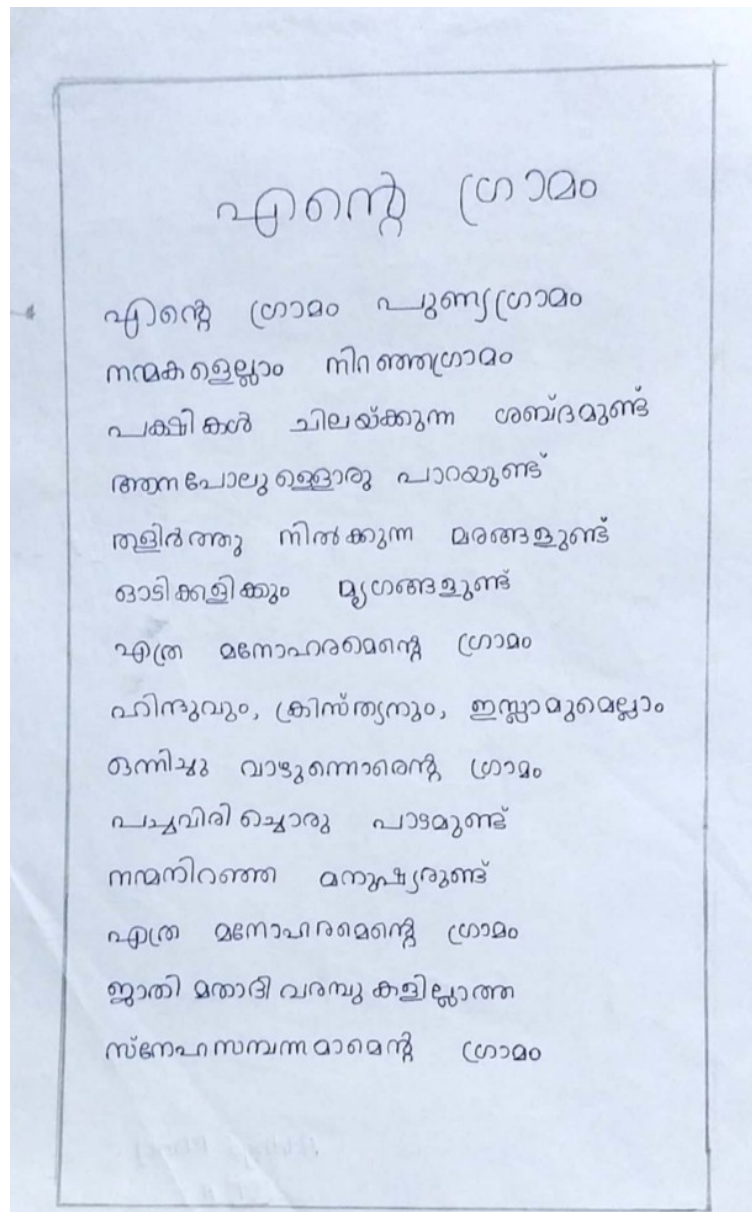 എന്റെ ഗ്രാമം
എന്റെ ഗ്രാമം പുണ്യഗ്രാമം
നന്മകളെല്ലാം നിറഞ്ഞഗ്രാമം
പക്ഷികൾ ചിലയ്ക്കുന്ന ശബ്ദമുണ്ട്
ആനപോലുള്ളൊരു പാറയുണ്ട്
തളിർത്തു നിൽക്കുന്ന മരങ്ങളുണ്ട്
ഓടിക്കളിക്കും മൃഗങ്ങളുണ്ട്
എത്ര മനോഹരമെന്റെ ഗ്രാമം
ഹിന്ദുവും, ക്രിസ്ത്യനും, ഇസ്ലാമുമെല്ലാം
ഒന്നിച്ചു വാഴുന്നൊരെന്റ ഗ്രാമം
പച്ചവിരിച്ചൊരു പാടമുണ്ട്
നന്മനിറഞ്ഞ മനുഷ്യരുണ്ട്
എത്ര മനോഹരമെന്റെ ഗ്രാമം
ജാതി മതാദി വരമ്പുകളില്ലാത്ത
സ്നേഹസമ്പന്നമാമെന്റ ഗ്രാമം